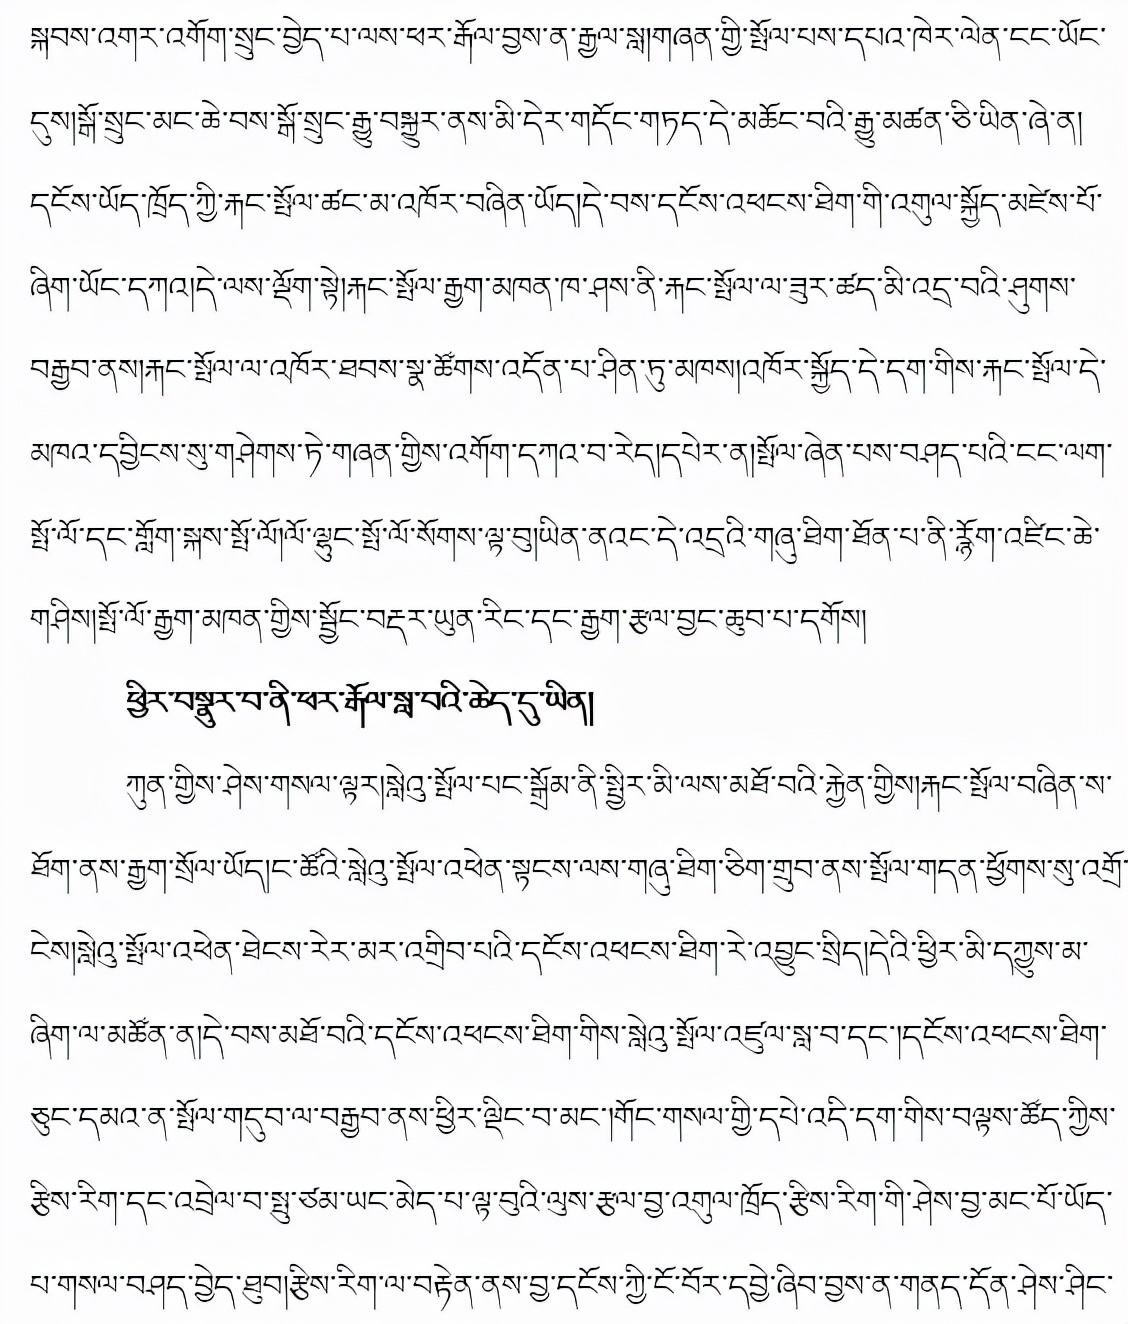 སྐབས་འགར་འགོག་སྲུང་བྱེད་པ་ལས་ཕར་རྒོལ་བྱས་ན་རྒྱལ་སླ།གཞན་གྱི་སྤོལ་པས་དཔའ་ཁེར་ལེན་ངང་ཡོང་
དུས།སྒོ་སྲུང་མང་ཆེ་བས་སྒོ་སྲུང་རྒྱུ་བསྐྱུར་ནས་མི་དེར་གདོང་གཏད་དེ་མཆོང་བའི་རྒྱུ་མཚན་ཅི་ཡིན་ཞེ་ན།
དངོས་ཡོད་ཁྲོད་ཀྱི་རྐང་སྤོལ་ཚང་མ་འཁོར་བཞིན་ཡོད།དེ་བས་དངོས་འཕངས་ཐིག་གི་འགུལ་སྐྱོད་མཛེས་པོ་
ཞིག་ཡོང་དཀའ།དེ་ལས་ལྡོག་སྟེ།རྐང་སྤོལ་རྒྱག་མཁན་ཁ་ཤས་ནི་རྐང་སྤོལ་ལ་ཟུར་ཚད་མི་འདྲ་བའི་ཤུགས་
བརྒྱབ་ནས།རྐང་སྤོལ་ལ་འཁོར་ཐབས་སྣ་ཚོགས་འདོན་པ་ཤིན་ཏུ་མཁས།འཁོར་སྐྱོད་དེ་དག་གིས་རྐང་སྤོལ་དེ་
མཁའ་དབྱིངས་སུ་གཤེགས་ཏེ་གཞན་གྱིས་འགོག་དཀའ་བ་རེད།དཔེར་ན།སྤོལ་ཞེན་པས་བཤད་པའི་ངང་ལག་
སྤོ་ལོ་དང་གློག་སྐས་སྤོ་ལོ།ལོ་ལྷུང་སྤོ་ལོ་སོགས་ལྟ་བུ།ཡིན་ནའང་དེ་འདྲའི་གཞུ་ཐིག་ཐོན་པ་ནི་རྙོག་འཛིང་ཆེ་
གཤིས།སྤོ་ལོ་རྒྱག་མཁན་གྱིས་སྦྱོང་བརྡར་ཡུན་རིང་དང་རྒྱག་རྩལ་བྱང་ཆུབ་པ་དགོས།
ཕྱིར་བསྣུར་བ་ནི་ཕར་རྒོལ་སླ་བའི་ཆེད་དུ་ཡིན།
ཀུན་གྱིས་ཤེས་གསལ་ལྟར།སླེའུ་སྤོལ་པང་སྒྲོམ་ནི་སྤྱིར་མི་ལས་མཐོ་བའི་རྐྱེན་གྱིས།རྐང་སྤོལ་བཞིན་ས་
ཐོག་ནས་རྒྱག་སྲོལ་ཡོད།ང་ཚོའི་སླེའུ་སྤོལ་འཕེན་སྟངས་ལས་གཞུ་ཐིག་ཅིག་གྲུབ་ནས་སྤོལ་གདན་ཕྱོགས་སུ་འགྲོ་
ངེས།སླེའུ་སྤོལ་འཕེན་ཐེངས་རེར་མར་འགྲིབ་པའི་དངོས་འཕངས་ཐིག་རེ་འབྱུང་སྲིད།དེའི་ཕྱིར་མི་དཀྱུས་མ་
ཞིག་ལ་མཚོན་ན།དེ་བས་མཐོ་བའི་དངོས་འཕངས་ཐིག་གིས་སླེའུ་སྤོལ་འཛུལ་སླ་བ་དང་།དངོས་འཕངས་ཐིག་
ཅུང་དམའ་ན་སྤོལ་གདུབ་ལ་བརྒྱབ་ནས་ཕྱིར་ལྡིང་བ་མང་།གོང་གསལ་གྱི་དཔེ་འདི་དག་གིས་བལྟས་ཚོད་ཀྱིས་
རྩིས་རིག་དང་འབྲེལ་བ་སྤུ་ཙམ་ཡང་མེད་པ་ལྟ་བུའི་ལུས་རྩལ་བྱ་འགུལ་ཁྲོད་རྩིས་རིག་གི་ཤེས་བྱ་མང་པོ་ཡོད་
པ་གསལ་བཤད་བྱེད་ཐུབ།རྩིས་རིག་ལ་བརྟེན་ནས་བྱ་དངོས་ཀྱི་ངོ་བོར་དབྱེ་ཞིབ་བྱས་ན་གནད་དོན་ཤེས་ཤིང་